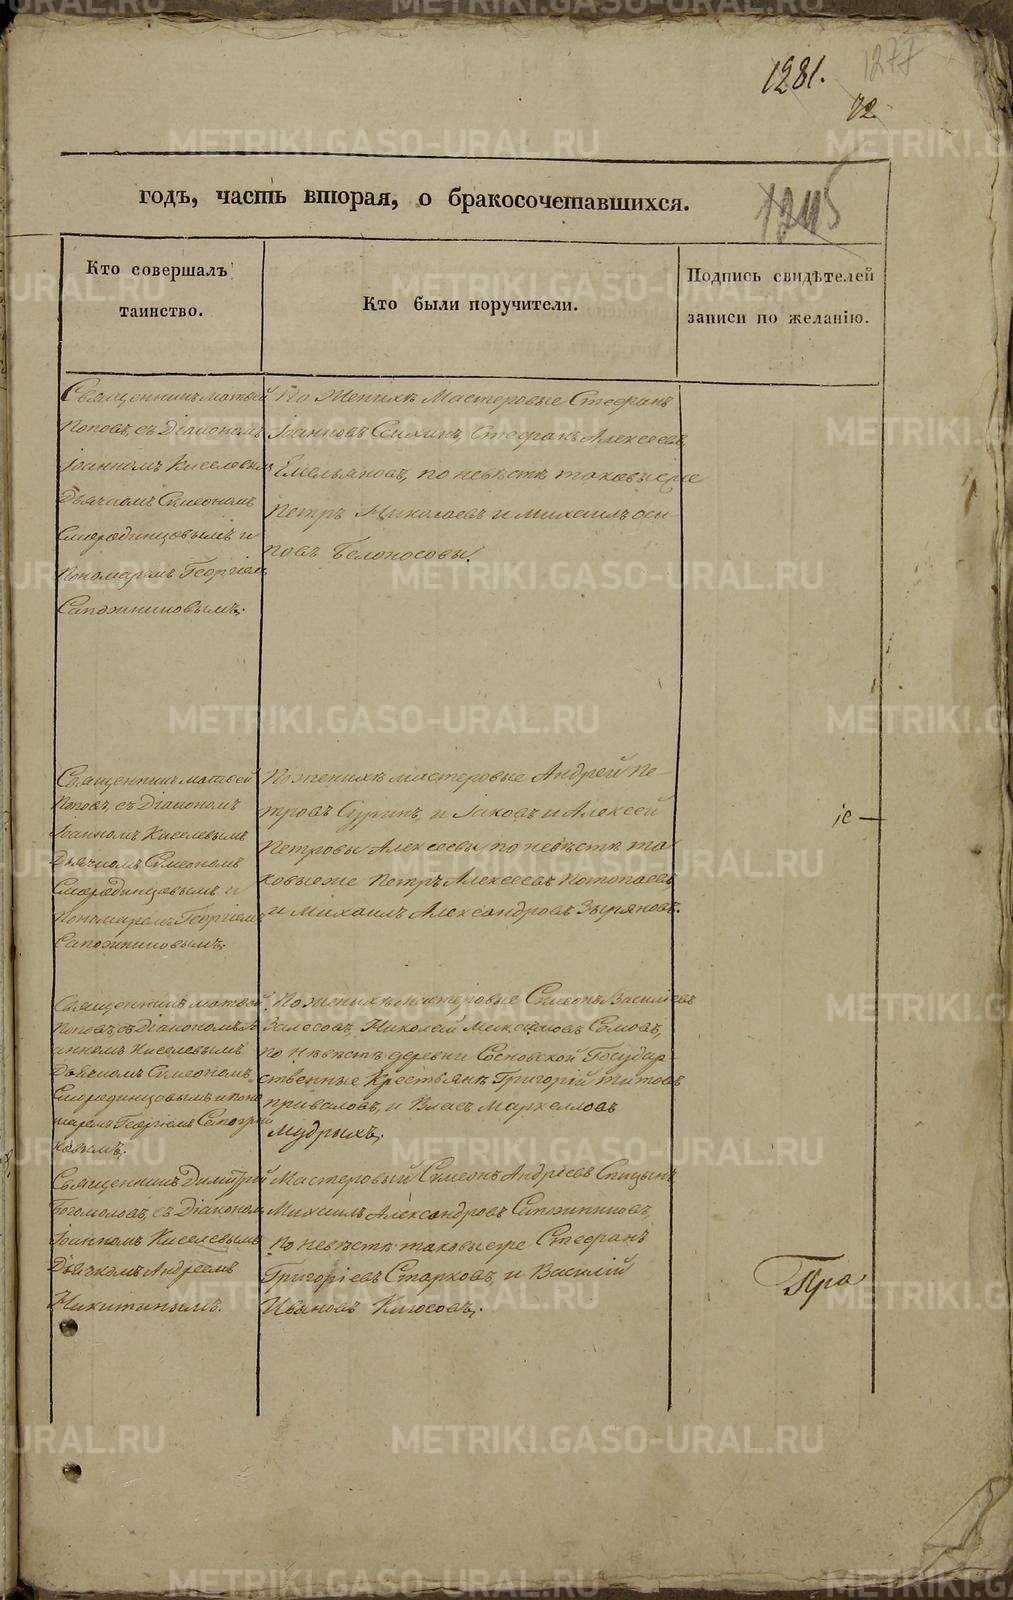 1281. 1277
72
годъ, часть вторая, о бракосочетавшихся.
1245
Кто совершалъ
таинство.
Кто были поручители.
Подпись свидѣтелей
записи по желанію.
Священникъ Матвей
Поповъ, съ Діакономъ
Іоанномъ Киселевымъ
Дьячкомъ Симеономъ
Смородинцовымъ и
Пономаремъ Георгіем
Сапожниковымъ.
По Женихѣ Мастеровые Стефанъ
Іоанновъ Стефанъ Алексѣевъ
Емельяновъ, по невѣстѣ таковыеже
Петръ Николаевъ и Михаилъ Оси-
повъ Белоносовы.
Священникъ Матвей
Поповъ, съ Діакономъ
Іоанномъ Киселевымъ
Дьячкомъ Симеономъ
Смородинцовымъ и
Пономаремъ Георгіемъ
Сапожниковымъ.
По женихѣ мастеровые Андрей Пе-
тровъ Суринъ, и Іаковъ и Алексей
Петровы Алексеевы по невѣстѣ та
ковыеже Петръ Алексеевъ Потопаевъ
и Михаилъ Александровъ Зыряновъ.
іе
Священникъ Матвей
Поповъ, съ Діакономъ Іо
анномъ Киселевымъ
Дьячкомъ Симеономъ
Смородинцовымъ и Поно
маремъ Георгіемъ Сапожни
ковымъ.
По женихѣ мастеровые Симеонъ Василіевъ
Залосовъ, Николай Максимовъ Сомовъ,
по невѣстѣ деревни Сосновской Государ-
ственные Крестьяне Григорій Титовъ
Приваловъ, и Власъ Маркелловъ
Мудрыхъ.
Священникъ Димитрій
Богомоловъ, съ Діакономъ
Іоанномъ Киселевымъ
Дьячкомъ Андреемъ
Никитинымъ.
Мастеровый Симеонъ Андреевъ Спицынъ
Михаилъ Александровъ Сапожниковъ,
по невѣстѣ таковыеже Стефанъ
Григоріевъ Старковъ, и Василій
Ивановъ Клюсовъ.
Пра
METRIKI.GASO-URAL.RU